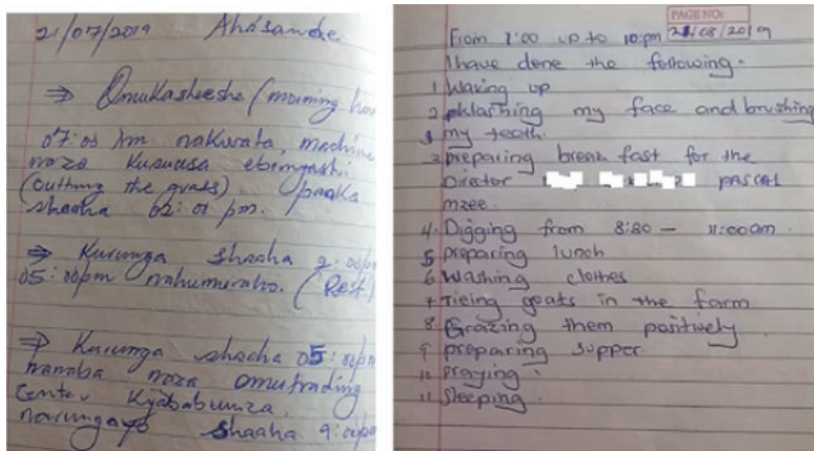 21/07/2019 Ahasande
⇒ Omukasheeshe (morning ho
07:00 Am nakwata machine
noza kusuusa ebinyashi
(Cutting the grass). paaka
shaaha 02:01 pm.
⇒ Kurunga shaaha 2:00pm
05:00pm nahumuraho. (Rest)
⇒ Kurunga shaaha 05:00pm
nanaba noza omutrading
Center Kyababumza,
narungayo shaaha 9:00pm
PAGE NO:
From 7:00 up to 10:pm 21/08/2019
I have done the following.
1 Waking up
2 phlashing my face and brushing
my teeth.
3 preparing break fast for the
Director PASCAL
mzee.
4. Digging from 8:30 - 11:00am.
5 preparing lunch
6 Washing clothes
7 Tieing goats in the farm
8. Grazing them positively
9 preparing supper.
10 praying.
11 Sleeping.